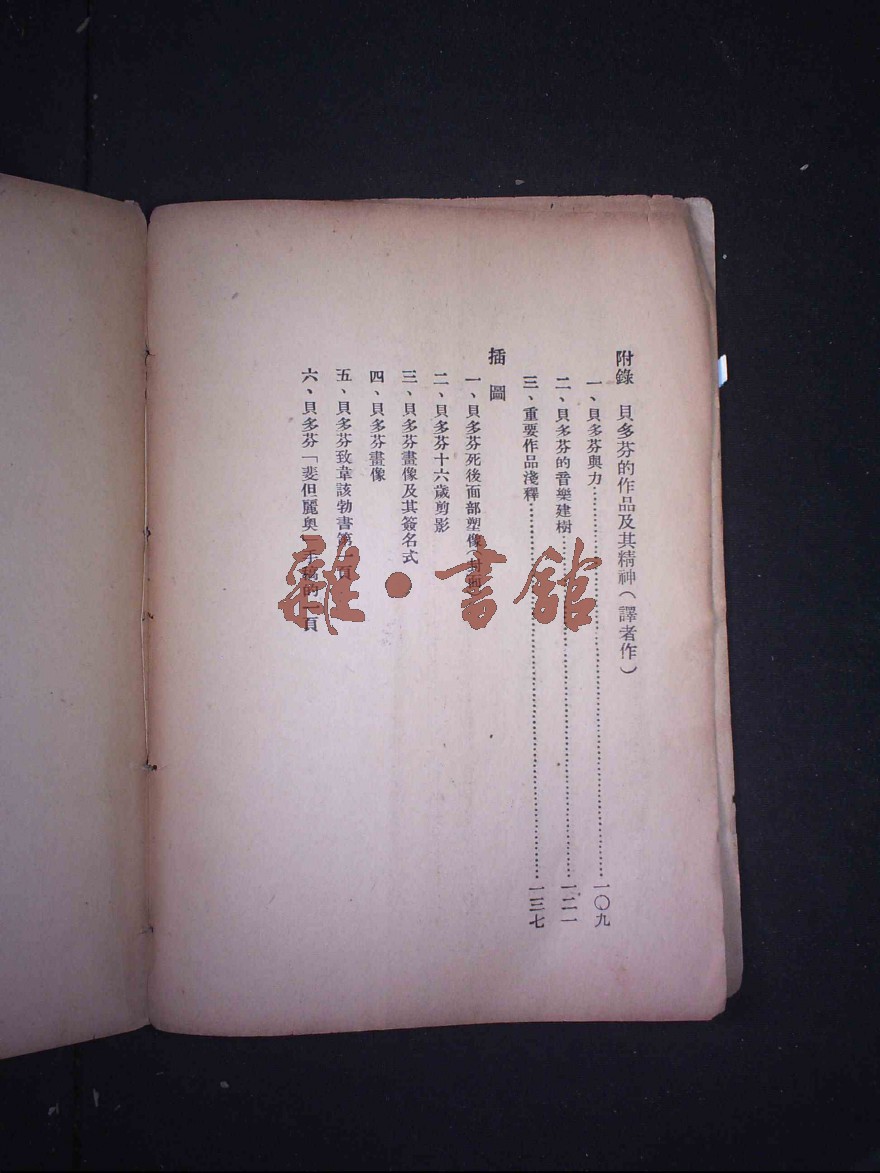 附錄　貝多芬的作品及其精神（譯者作）
一、貝多芬與力…………一〇九
二、貝多芬的音樂建樹…………一二一
三、重要作品淺釋…………一三七
插圖
一、貝多芬死後面部塑像（封面）
二、貝多芬十六歲剪影
三、貝多芬畫像及其簽名式
四、貝多芬畫像
五、貝多芬致韋該勃書第一頁
六、貝多芬「斐但麗奧」手稿的一頁
雜·書館